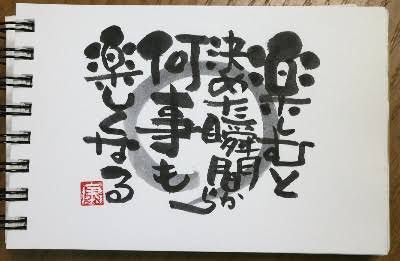 楽しむと
決めた瞬間から
何事も
楽しくなる